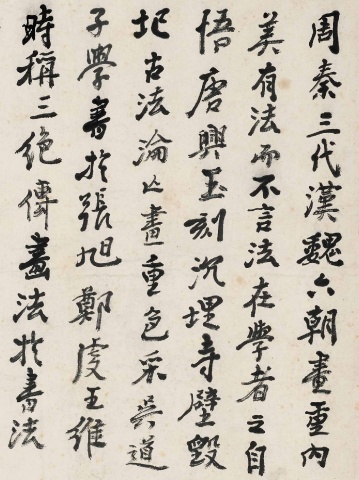 周秦三代漢魏六朝畫重內
美有法而不言法在學者之自
悟唐興玉刻沉埋寺壁毀
圮古法淪亡畫重色采吳道
子學書於張旭鄭虔王維
時稱三絕傳畫法於書法